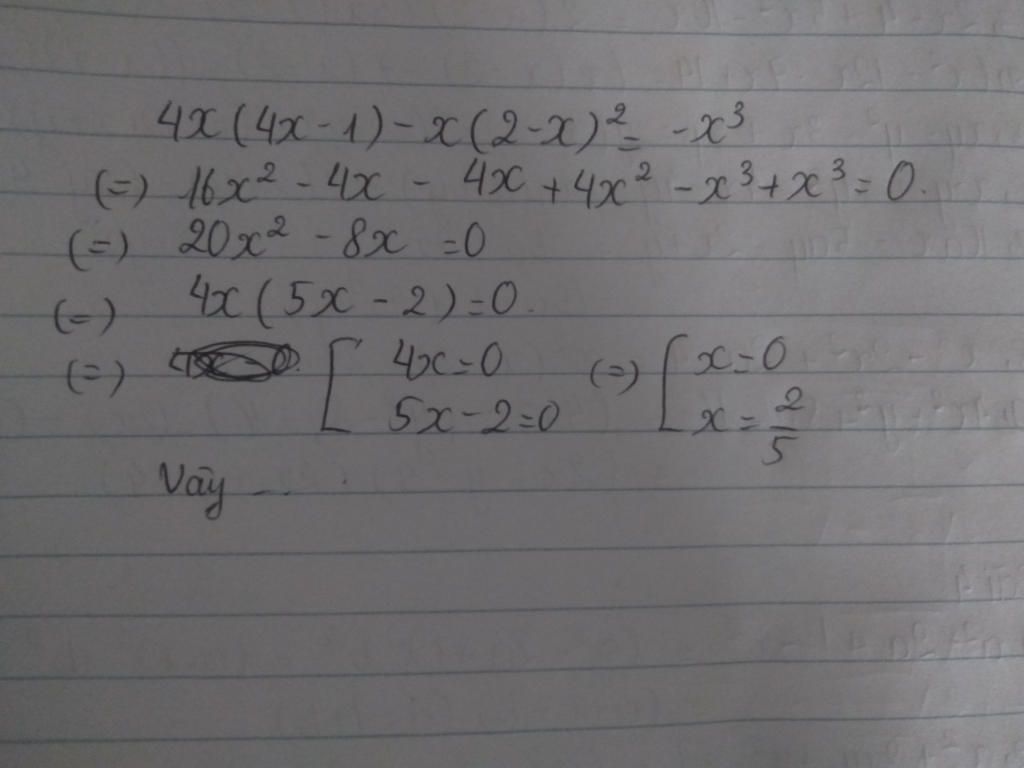 4x(4x-1)-x(2-x)² = -x³
(=) 16x² - 4x - 4x + 4x² - x³ + x³ = 0.
(=) 20x² - 8x = 0
(=) 4x(5x - 2) = 0.
(=) [ 4x = 0 (=) [ x = 0
5x - 2 = 0 x = 2/5
Vậy ...